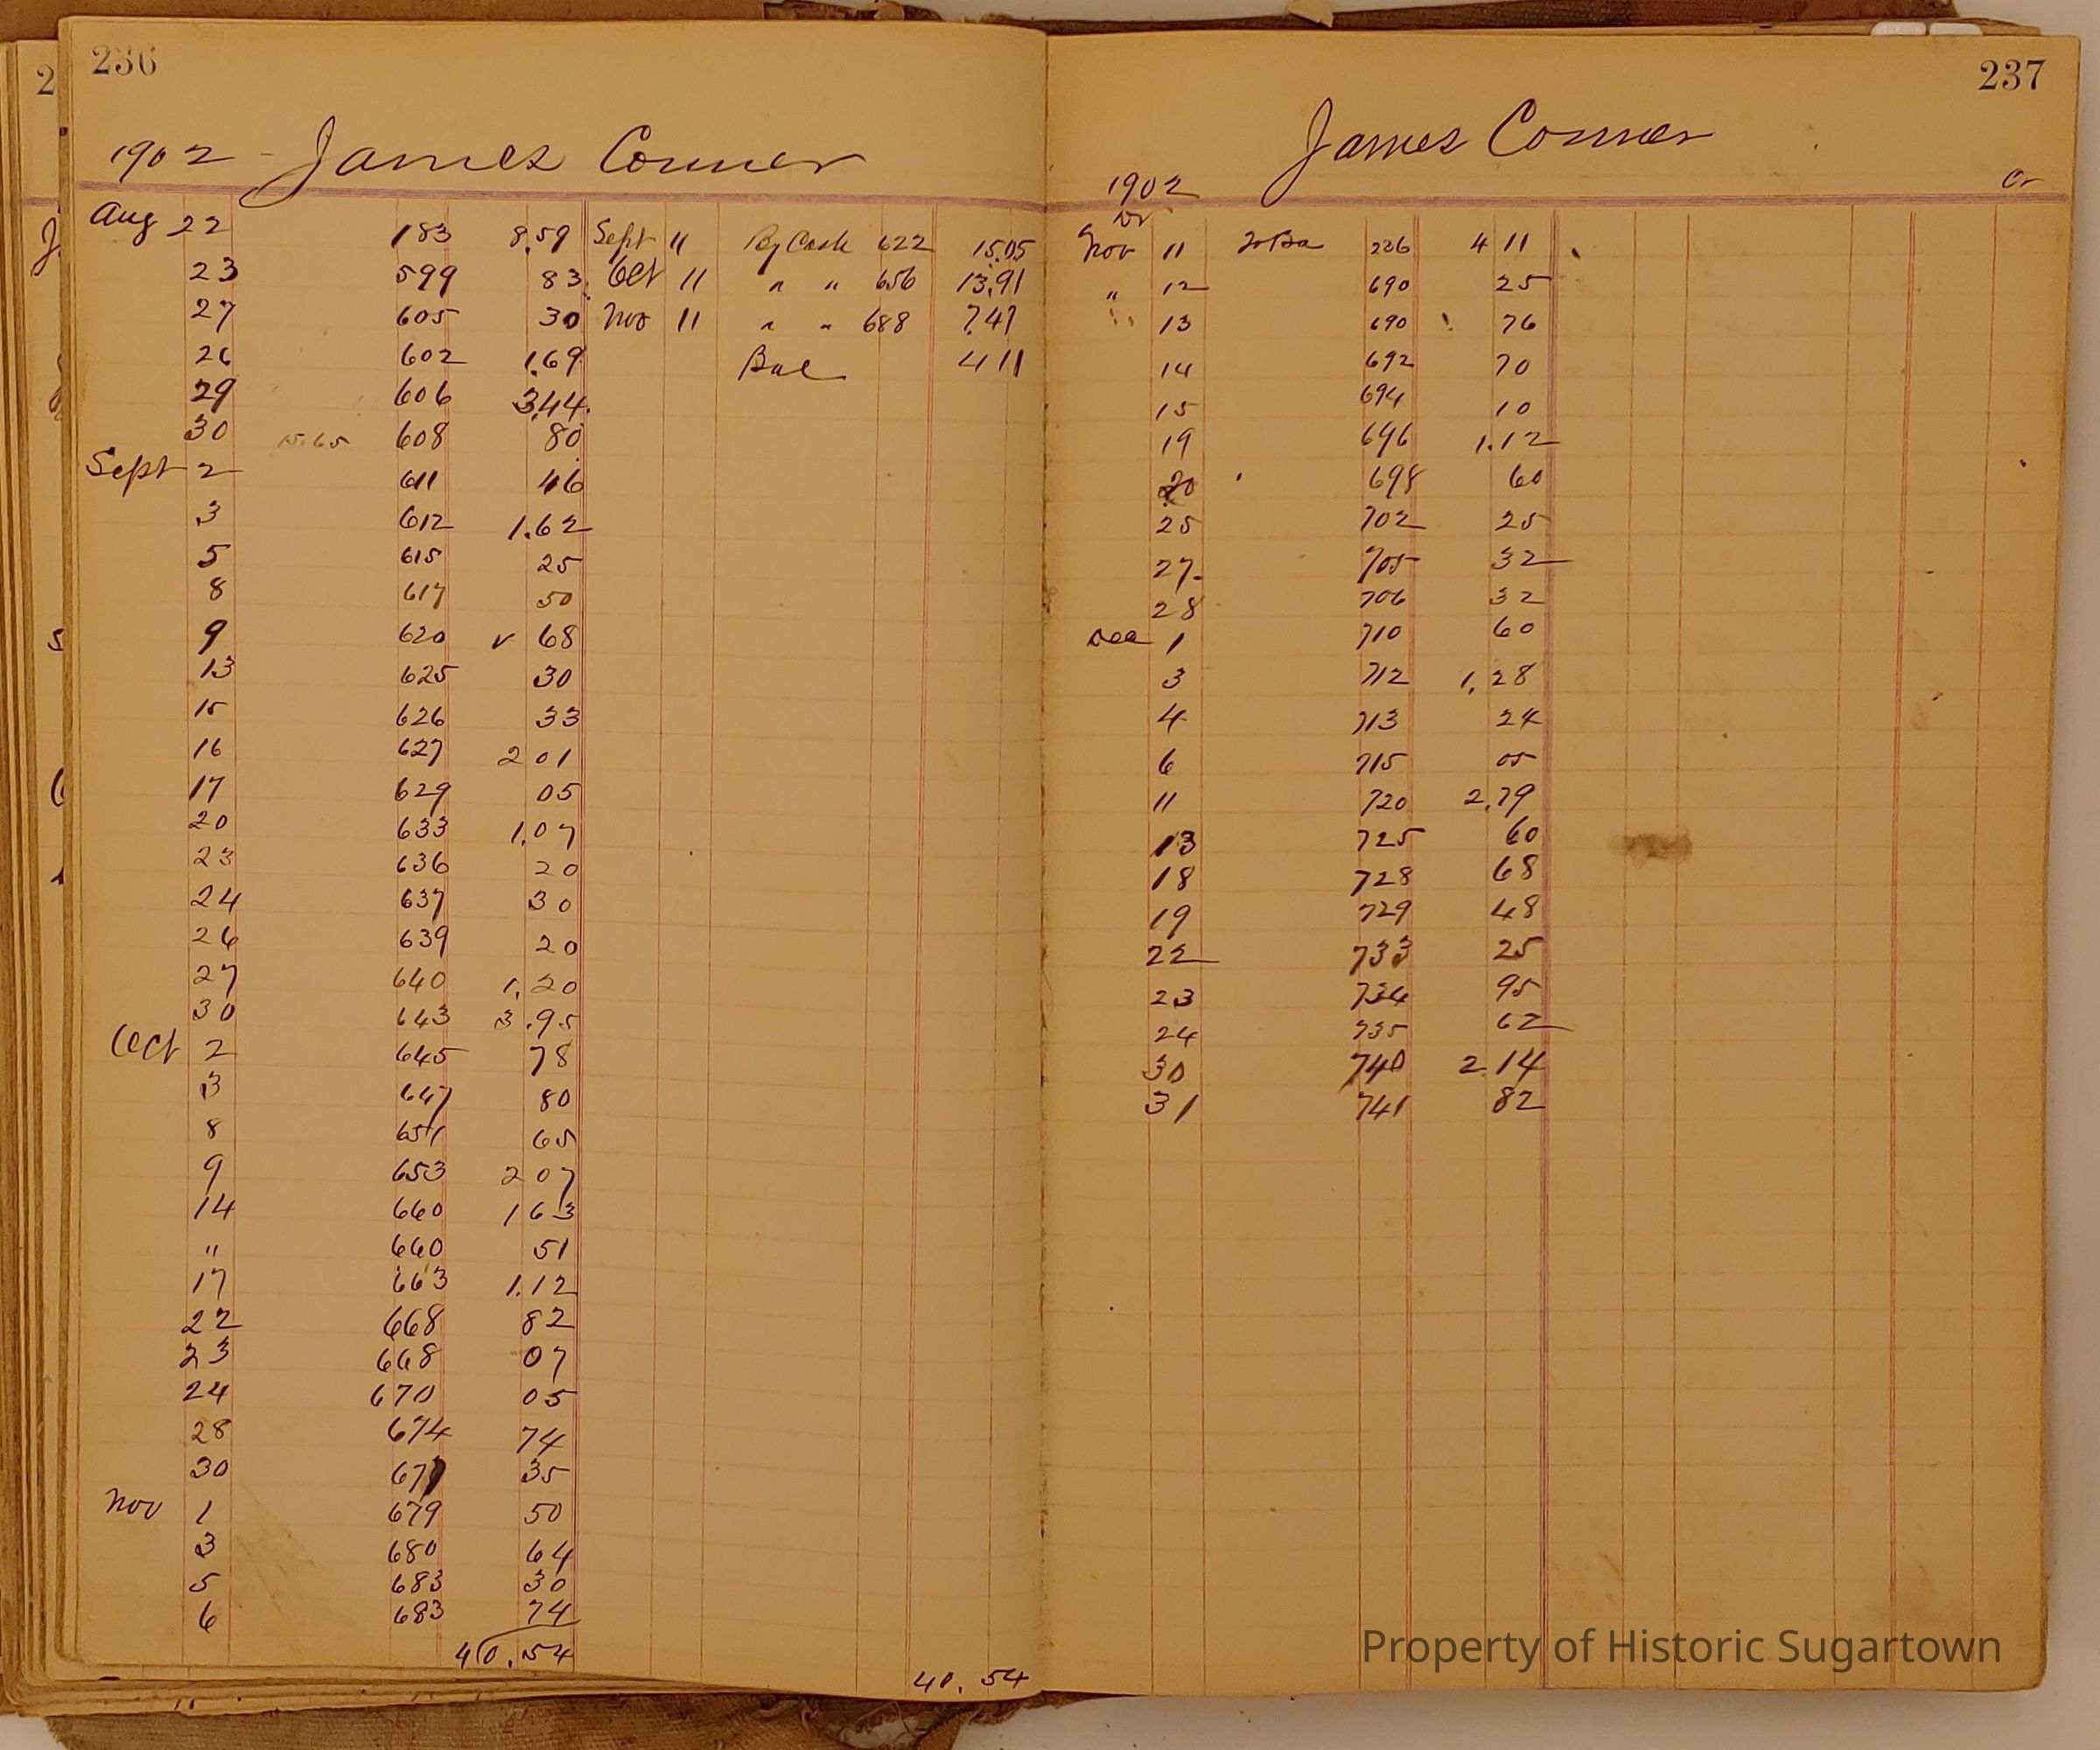 236
1902 - James Conner
Aug 22 183 8.59 Sept 11 By Cash 622 15.05
23 599 83 Oct 11 " " 656 13.91
27 605 30 Nov 11 " " 688 7.47
26 602 1.69 Bal 4 11
29 606 3.44
30 15.65 608 80
Sept 2 611 46
3 612 1.62
5 615 25
8 617 50
9 620 v 68
13 625 30
15 626 33
16 627 2 01
17 629 05
20 633 1.07
23 636 20
24 637 30
26 639 20
27 640 1.20
30 643 3.95
Oct 2 645 78
3 647 80
8 651 65
9 653 2 07
14 660 1 63
" 660 51
17 663 1.12
22 668 82
23 668 07
24 670 05
28 674 74
30 677 35
Nov 1 679 50
3 680 64
5 683 30
6 683 74
40.54
40.54
237
James Conner
1902
Dr Cr
Nov 11 To Ba 236 4 11
" 12 690 25
" 13 690 76
14 692 70
15 694 10
19 696 1.12
20 698 60
25 702 25
27 705 32
28 706 32
Dec 1 710 60
3 712 1.28
4 713 24
6 715 05
11 720 2.79
13 725 60
18 728 68
19 729 48
22 733 25
23 734 95
24 735 62
30 740 2.14
31 741 82
Property of Historic Sugartown